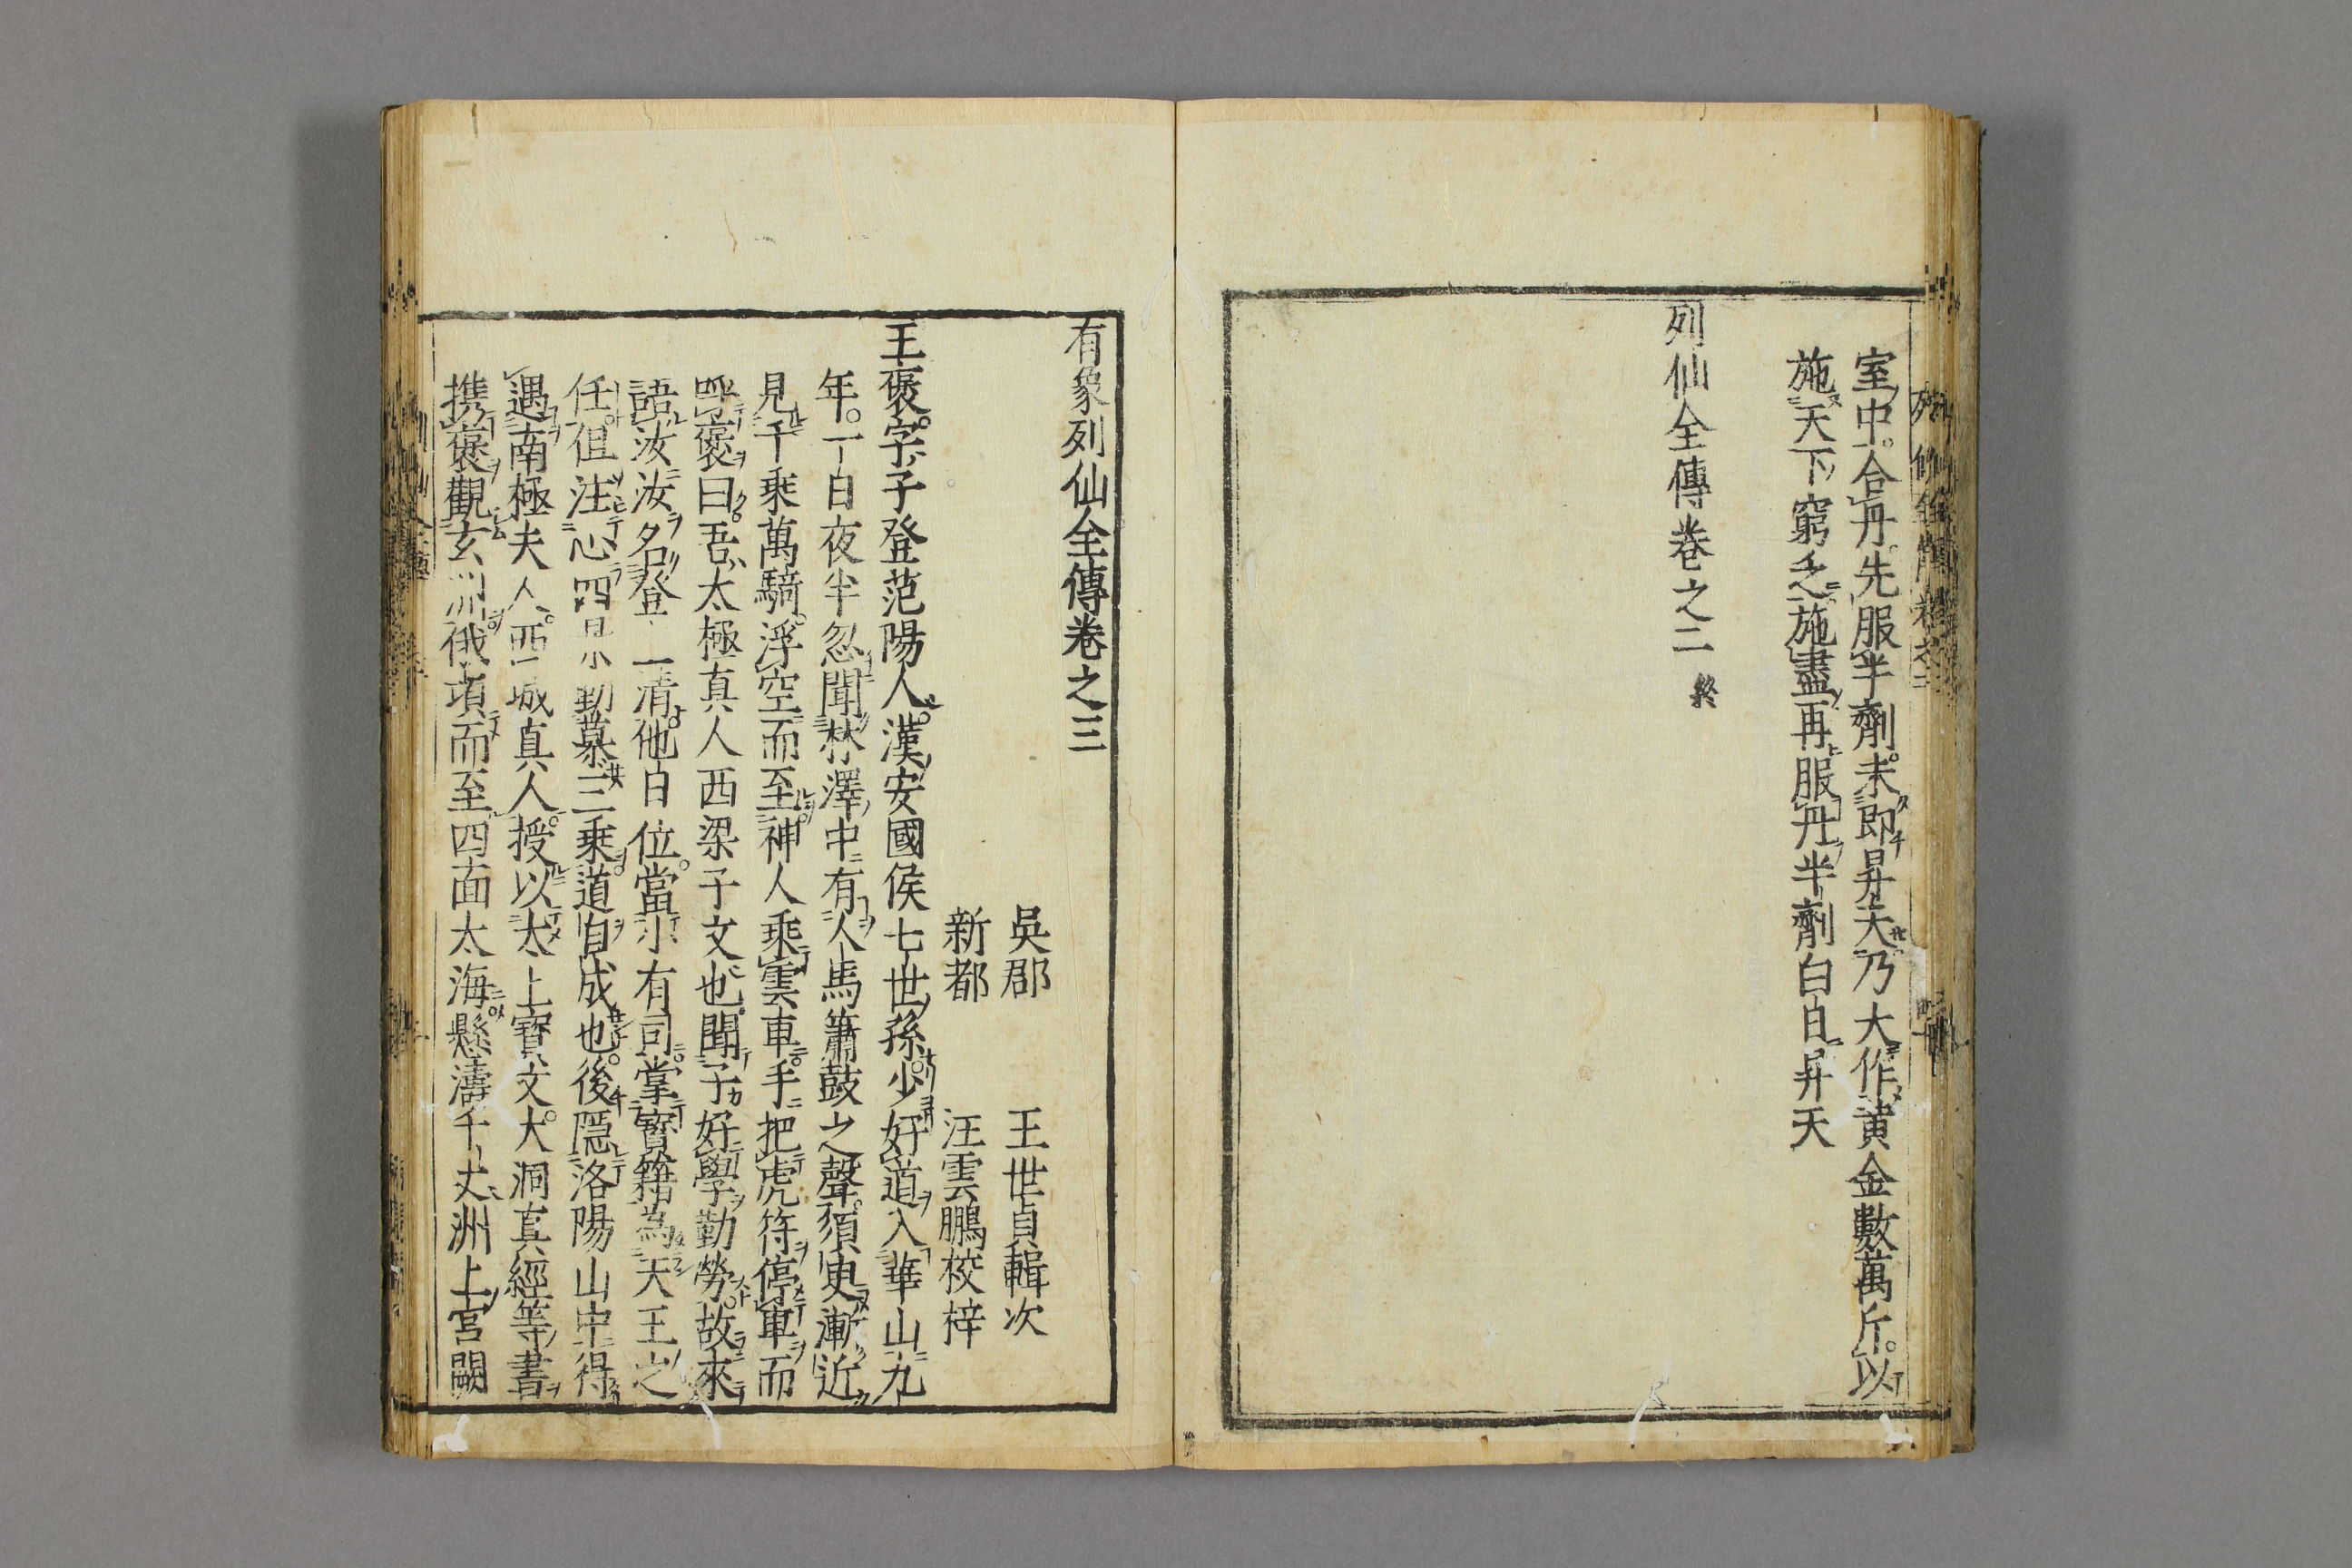 室中。合丹。先服半劑。未即昇天。乃大作黄金數萬斤。以
施天下窮乏。施盡再服丹半劑白日昇天
列仙全傳卷之二 終
有象列仙全傳卷之三
吳郡 王世貞輯次
新都 汪雲鵬校梓
王褒。字子登范陽人。漢安國侯七世孫。少好道入華山九
年。一日夜半忽聞林澤中有人馬簫鼓之聲。須臾漸近
見千乘萬騎。浮空而至。神人乘雲車。手把虎符停車而
呼褒曰。吾太極真人西梁子文也。聞子好學勤勞。故來
語汝汝名登 清他日位當小有司。掌寶籍為天王之
任。但注心 勤慕三乗。道自成也。後隠洛陽山中得
遇南極夫人。西城真人。授以太上寶文。大洞真經等書
携褒觀玄洲。俄頃而至四面太海。懸濤千丈洲上宮闕